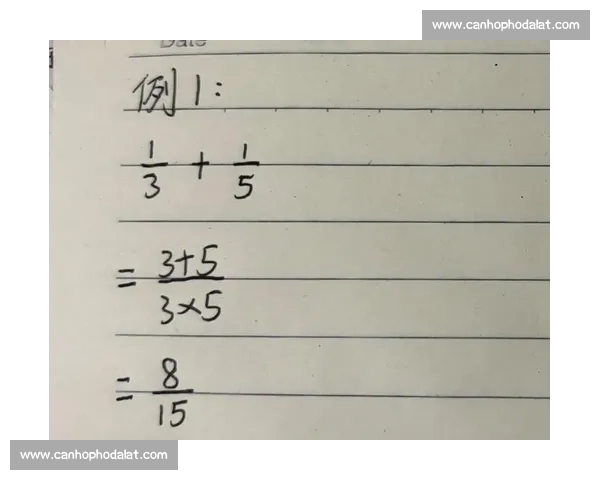 www.canhophodalat.com
Date
例1:
1/3 + 1/5
= 3+5/3×5
= 8/15
www.canhophodalat.com